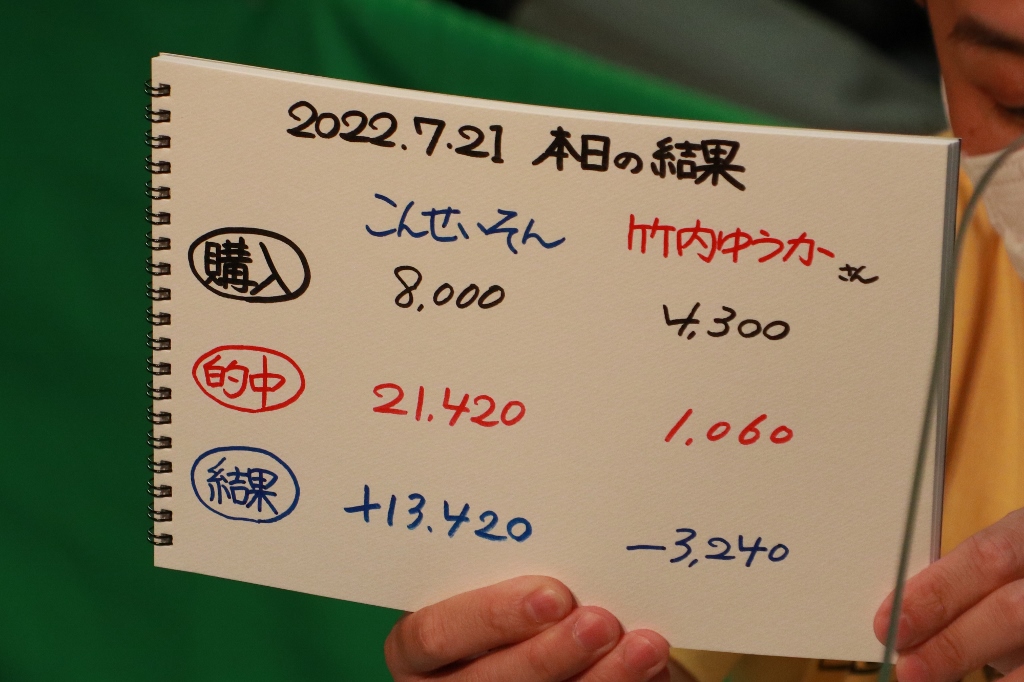 2022.7.21 本日の結果
こんせいそん 竹内ゆうカーさん
購入 8,000 4,300
的中 21.420 1.060
結果 +13.420 -3,240